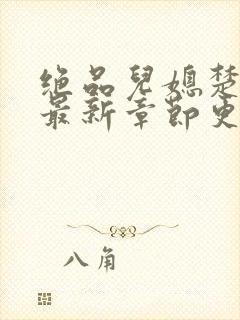 绝品兒媳楚
最新章節更
八角